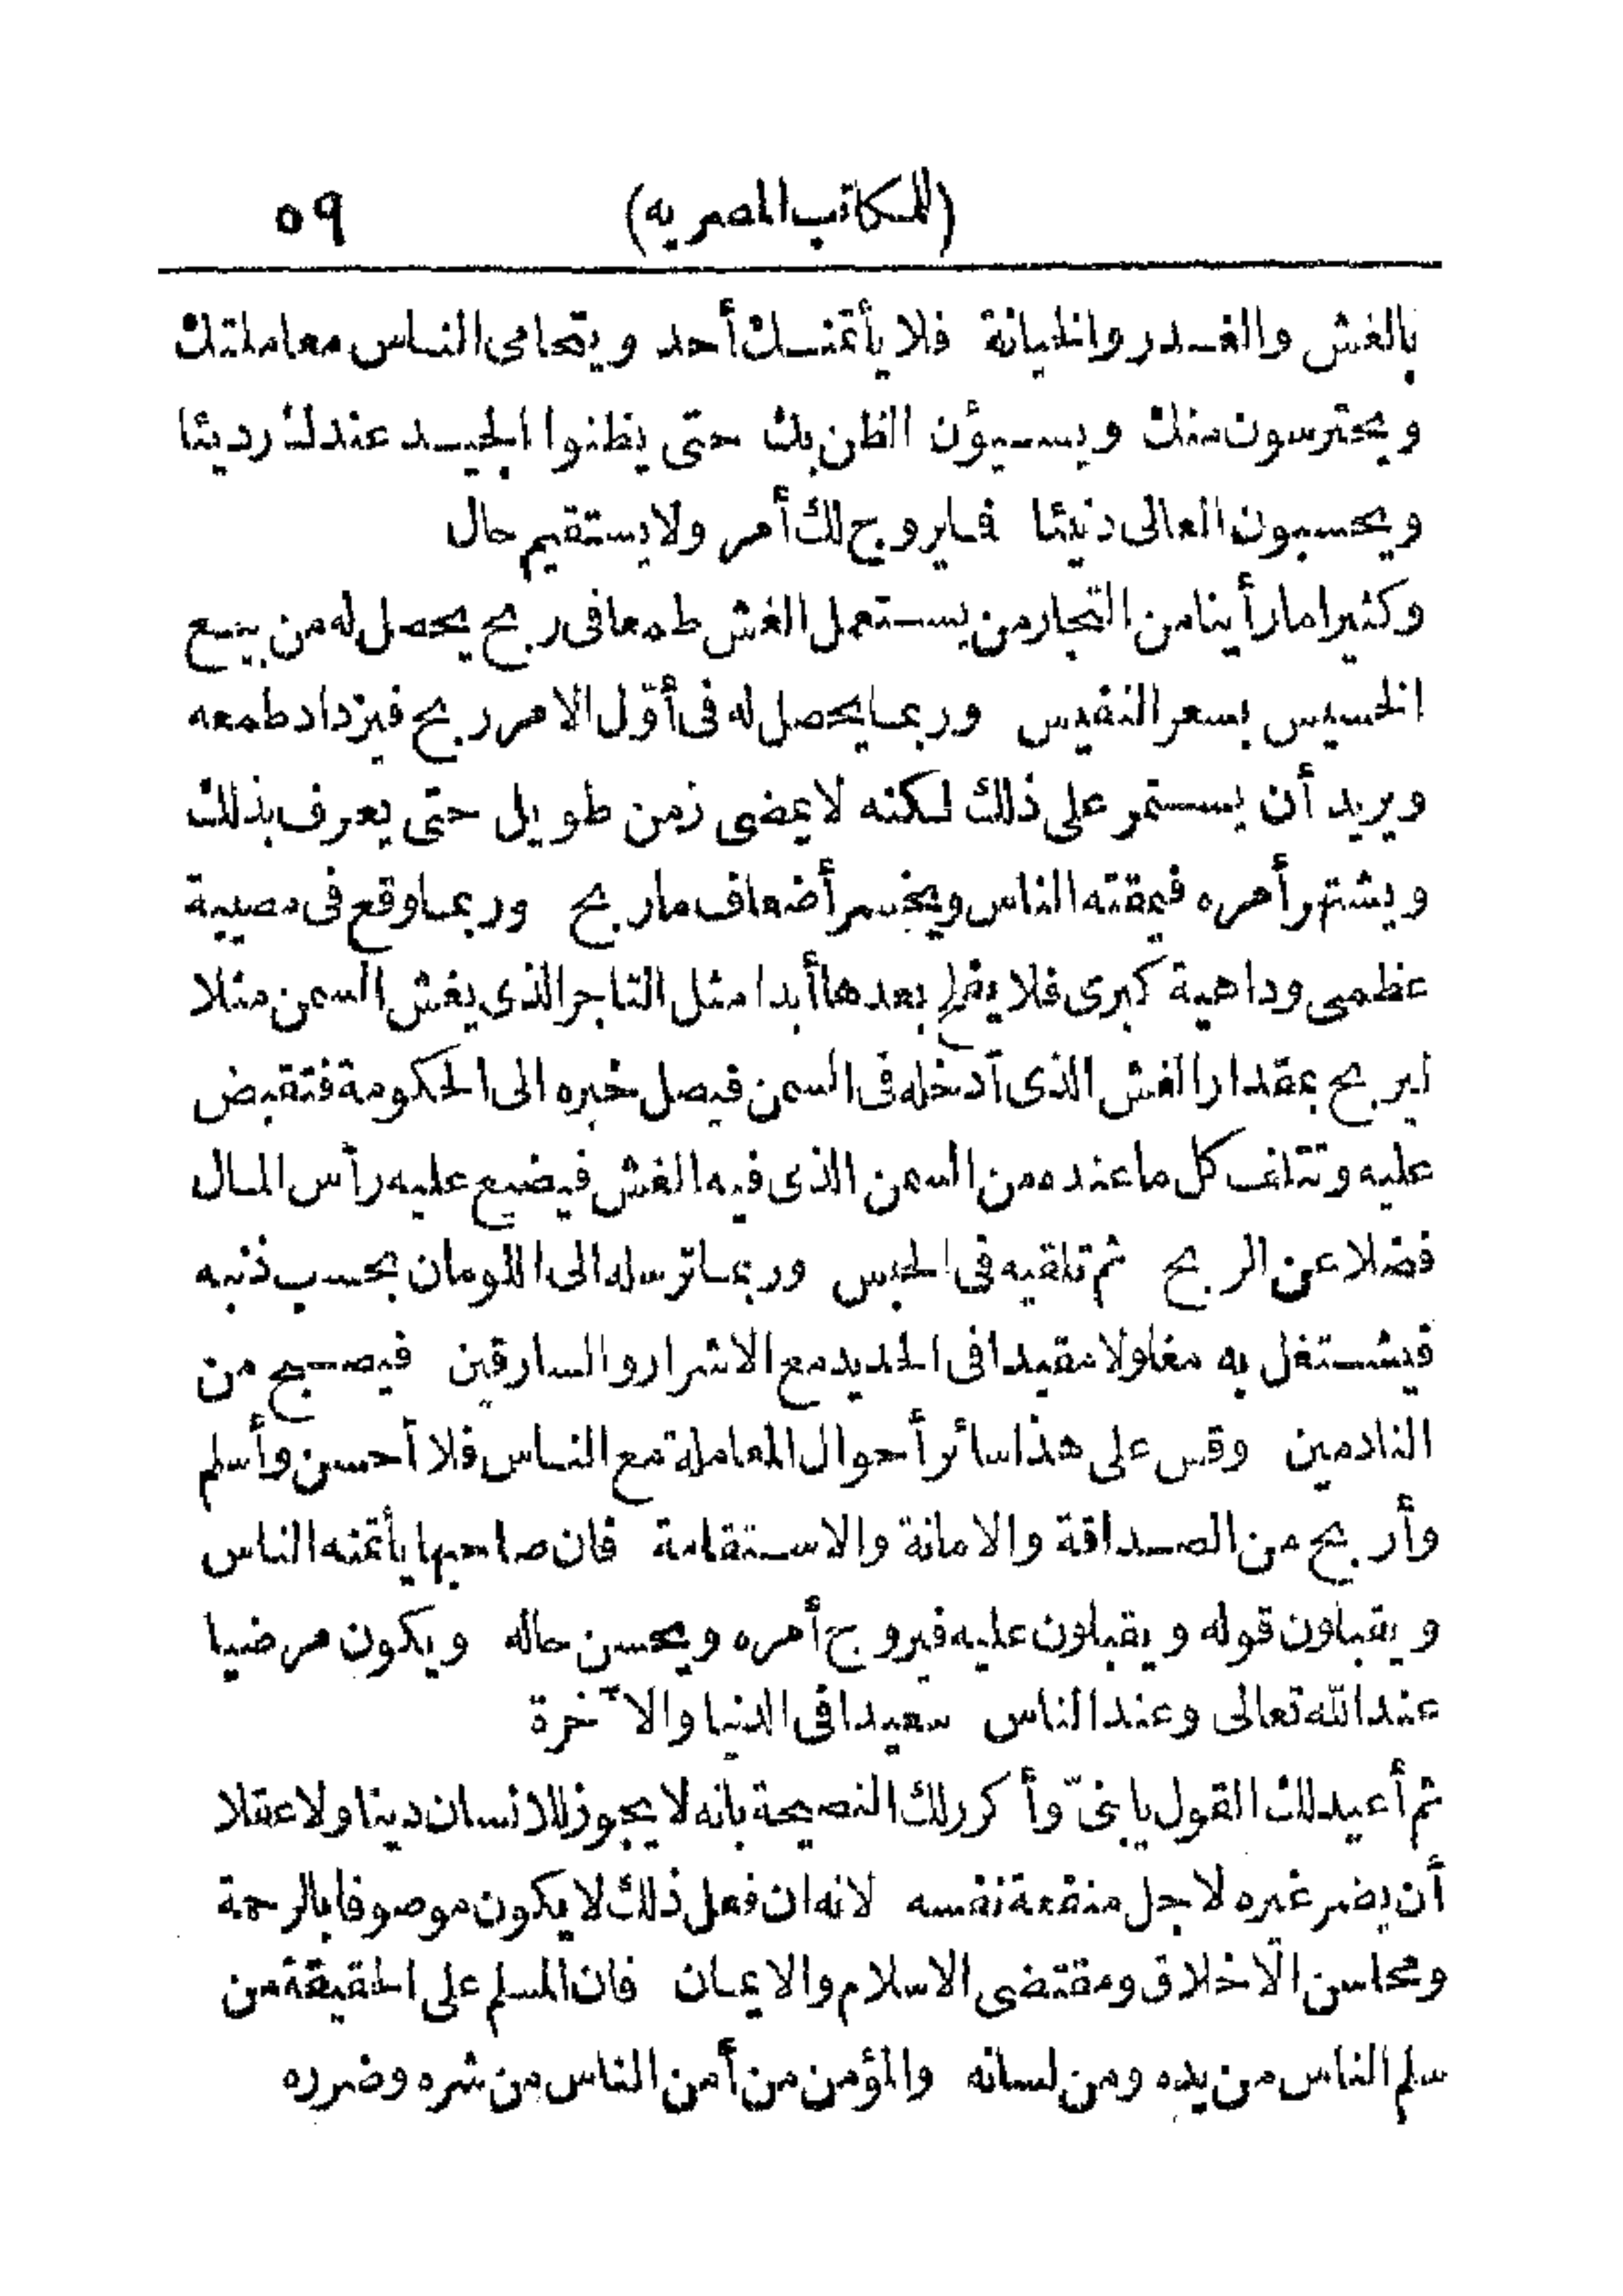 (للمكاتب المصريه) ٥٩
بالغش والغدر والخيانة فلا يأتمنك أحد ويتحامى الناس معاملتك
ويحترسون منك ويسيؤن الظن بك حتى يظنوا الجيد عندك رديئا
ويحسبون العالى دنيئا فما يروج لك أمر ولا يستقيم حال
وكثيرا ما رأينا من التجار من يستعمل الغش طمعا فى ربح يحصل له من بيع
الخسيس بسعر النفيس وربما يحصل له فى أوّل الامر ربح فيزداد طمعه
ويريد أن يستمر على ذلك لكنه لا يمضى زمن طويل حتى يعرف بذلك
ويشتهر أمره فيمقته الناس ويخسر أضعاف ما ربح وربما وقع فى مصيبة
عظمى وداهية كبرى فلا يفلح بعدها أبدا مثل التاجر الذى يغش السمن مثلا
ليربح بمقدار الغش الذى أدخله فى السمن فيصل خبره الى الحكومة فتقبض
عليه وتتلف كل ما عنده من السمن الذى فيه الغش فيضيع عليه رأس المال
فضلا عن الربح ثم تلقيه فى الحبس وربما ترسله الى اللومان بحسب ذنبه
فيشتغل به مغلولا مقيدا فى الحديد مع الاشرار والسارقين فيصبح من
النادمين وقس على هذا سائر أحوال المعاملة مع الناس فلا أحسن وأسلم
وأربح من الصداقة والامانة والاستقامة فان صاحبها يأتمنه الناس
ويقبلون قوله ويقبلون عليه فيروج أمره ويحسن حاله ويكون مرضيا
عند الله تعالى وعند الناس سعيدا فى الدنيا والآخرة
ثم أعيد لك القول يا بنىّ وأكرر لك النصيحة بانه لا يجوز للانسان دينا ولا عقلا
أن يضر غيره لاجل منفعة نفسه لانه ان فعل ذلك لا يكون موصوفا بالرحمة
ومحاسن الاخلاق ومقتضى الاسلام والايمان فان المسلم على الحقيقة من
سلم الناس من يده ومن لسانه والمؤمن من أمن الناس من شره وضرره